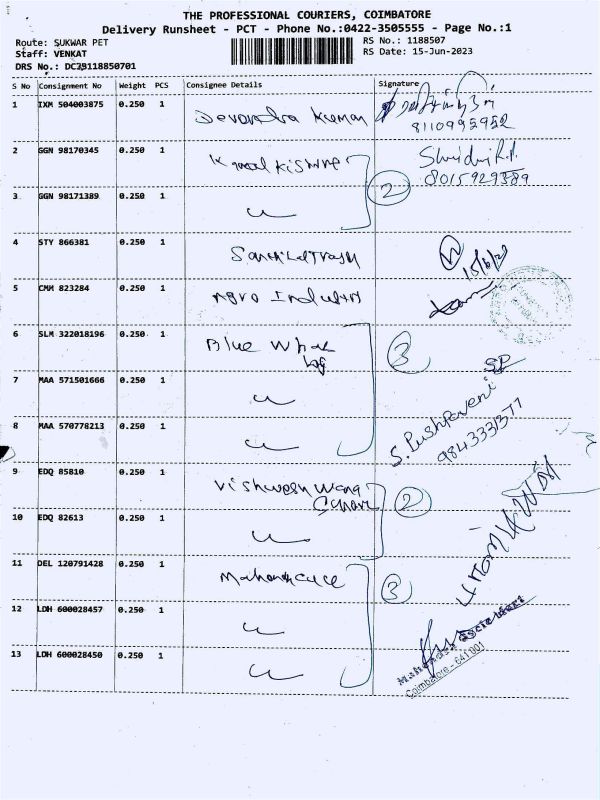 THE PROFESSIONAL COURIERS, COIMBATORE
Delivery Runsheet - PCT - Phone No.:0422-3505555 - Page No.:1
Route: SUKWAR PET
RS No.: 1188507
Staff: VENKAT
RS Date: 15-Jun-2023
DRS No.: DC23118850701
S No Consignment No Weight PCS Consignee Details Signature
1 IXM 504003875 0.250 1 Devandra Kumar
8110995952
2 GGN 98170345 0.250 1 Kishore
8015929389
2
3 GGN 98171389 0.250 1
4 STY 866381 0.250 1
15/6/23
5 CMM 823284 0.250 1 Agro Industry
6 SLM 322018196 0.250 1 Blue Whale
3
SP
7 MAA 571501666 0.250 1
S. Pushpaveni
8 MAA 570778213 0.250 1
9843331377
9 EDQ 85810 0.250 1 Vishwesh
2
10 EDQ 82613 0.250 1
11 DEL 120791428 0.250 1
3
12 LDH 600028457 0.250 1
13 LDH 600028450 0.250 1
Coimbatore - 641 001